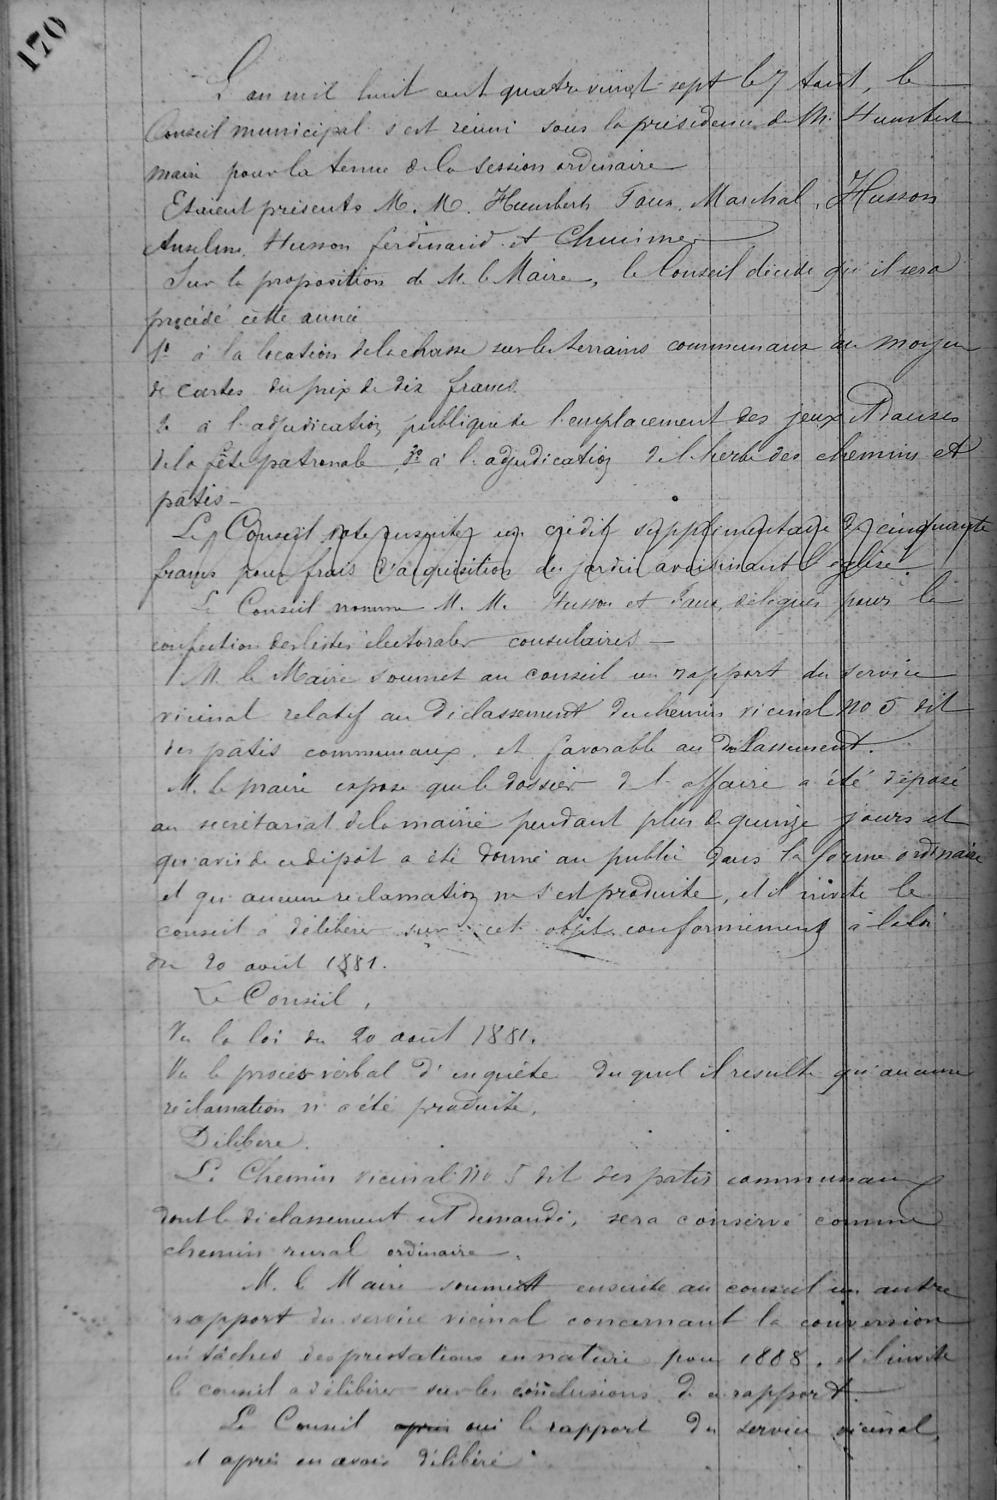 170
L'an mil huit cent quatre vingt sept le 7 Août, le
Conseil municipal s'est réuni sous la présidence de Mr Humbert
maire pour la tenue de la session ordinaire
Etaient présents M. M. Humbert, Marchal, Husson
Anselme, Husson ferdinand et
Sur la proposition de M. le Maire, le Conseil décide qu'il sera
procédé cette année
1º à la location de la chasse sur les terrains communaux au moyen
de cartes du prix de dix francs.
2º à l'adjudication publique de l'emplacement des jeux et Danses
de la fête patronale, 3º à l'adjudication de l'herbe des chemins et
pâtis –
Le Conseil vote ensuite un crédit supplémentaire de cinquante
francs pour frais d'acquisition du jardin avoisinant l'église.
Le Conseil nomme M. M. Husson et délégués pour la
confection des listes électorales consulaires –
M. le Maire soumet au conseil un rapport du service
vicinal relatif au déclassement du chemin vicinal No 5 dit
des pâtis communaux, et favorable au déclassement.
M. le maire expose que le dossier de l'affaire a été déposé
au secrétariat de la mairie pendant plus de quinze jours et
qu'avis de ce dépôt a été donné au public dans la forme ordinaire
et qu'aucune réclamation ne s'est produite, et il invite le
conseil à délibérer sur cet objet conformément à la loi
du 20 août 1881.
Le Conseil,
Vu la loi du 20 août 1881.
Vu le procès verbal d'enquête duquel il résulte qu'aucune
réclamation n'a été produite,
Délibère.
Le Chemin vicinal No 5 dit des pâtis communaux
dont le déclassement est demandé, sera conservé comme
chemin rural ordinaire.
M. le Maire soumet ensuite au conseil un autre
rapport du service vicinal concernant la conversion
en tâches des prestations en nature pour 1888, et l'invite
le conseil à délibérer sur les conclusions de ce rapport.
Le Conseil après oui le rapport du service vicinal,
et après en avoir délibéré